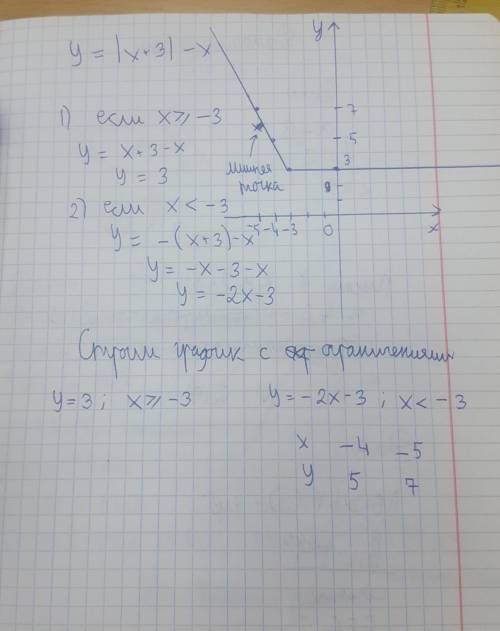 y = |x+3| -x
1) если x ⩾ -3
y = x+3-x
y = 3
2) если x < -3
y = -(x+3)-x
y = -x-3-x
y = -2x-3
y
7
5
3
-5 -4 -3 0 x
лишняя
точка
Строим график с ограничениями
y=3; x ⩾ -3 y=-2x-3; x < -3
x -4 -5
y 5 7